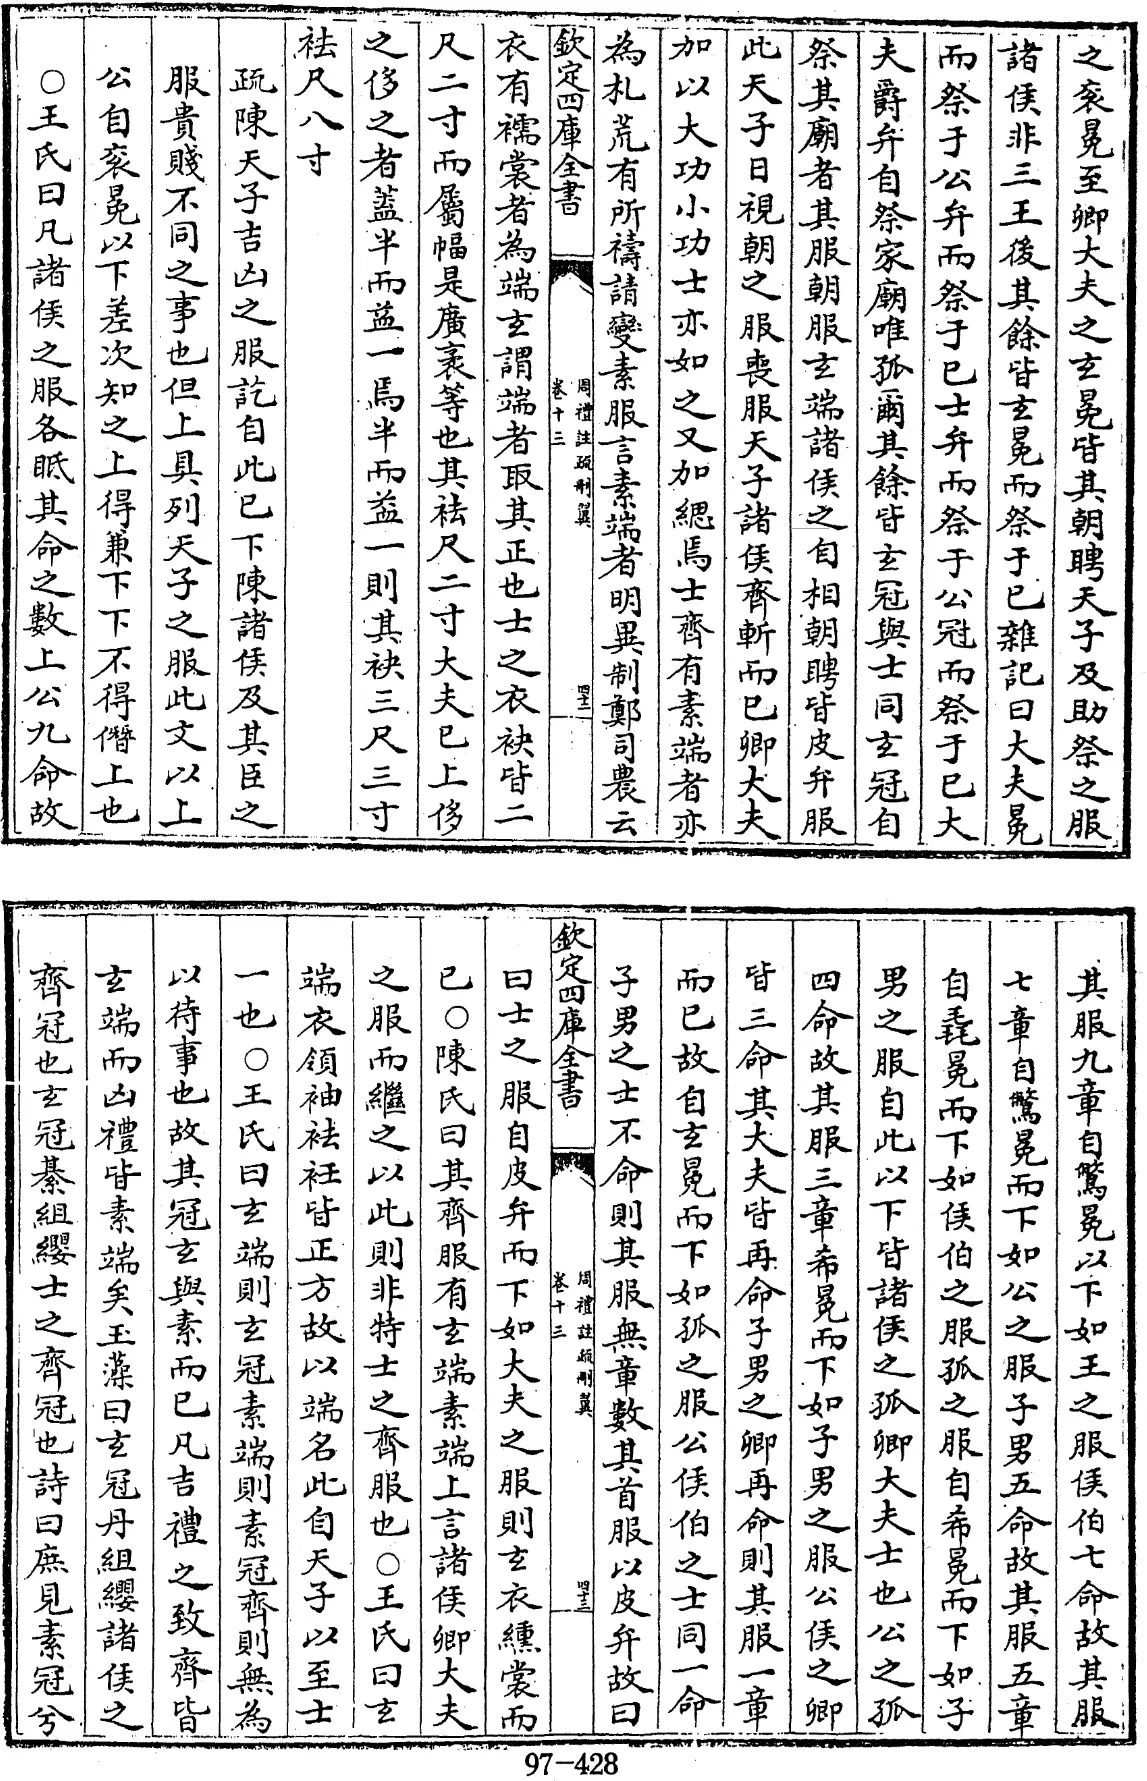 之衮冕至卿大夫之玄冕皆其朝聘天子及助祭之服
諸侯非二王後其餘皆玄冕而祭于已雜記曰大夫冕
而祭于公弁而祭于已士弁而祭于公冠而祭于已大
夫爵弁自祭家廟唯孤爾其餘皆玄冠與士同玄冠自
祭其廟者其服朝服玄端諸侯之自相朝聘皆皮弁服
此天子日視朝之服喪服天子諸侯齊斬而已卿大夫
加以大功小功士亦如之又加緦焉士齊有素端者亦
為札荒有所禱請變素服言素端者明異制鄭司農云
欽定四庫全書
周禮註疏刪翼
卷十三
四十二
衣有襦裳者為端玄謂端者取其正也士之衣袂皆二
尺二寸而屬幅是廣袤等也其袪尺二寸大夫已上侈
之侈之者蓋半而益一焉半而益一則其袂三尺三寸
袪尺八寸
疏陳天子吉凶之服訖自此已下陳諸侯及其臣之
服貴賤不同之事也但上具列天子之服此文以上
公自衮冕以下差次知之上得兼下下不得僭上也
○王氏曰凡諸侯之服各眡其命之數上公九命故
其服九章自鷩冕以下如王之服侯伯七命故其服
七章自鷩冕而下如公之服子男五命故其服五章
自毳冕而下如侯伯之服孤之服自希冕而下如子
男之服自此以下皆諸侯之孤卿大夫士也公之孤
四命故其服三章希冕而下如子男之服公侯之卿
皆三命其大夫皆再命子男之卿再命則其服一章
而已故自玄冕而下如孤之服公侯伯之士同一命
子男之士不命則其服無章數其首服以皮弁故曰
欽定四庫全書
周禮註疏刪翼
卷十三
四十三
曰士之服自皮弁而下如大夫之服則玄衣纁裳而
已○陳氏曰其齊服有玄端素端上言諸侯卿大夫
之服而繼之以此則非特士之齊服也○王氏曰玄
端衣領袖袪衽皆正方故以端名此自天子以至士
一也○王氏曰玄端則玄冠素端則素冠齊則無為
以待事也故其冠玄與素而已凡吉禮之致齊皆
玄端而凶禮皆素端矣玉藻曰玄冠丹組纓諸侯之
齊冠也玄冠綦組纓士之齊冠也詩曰庶見素冠兮
97-428